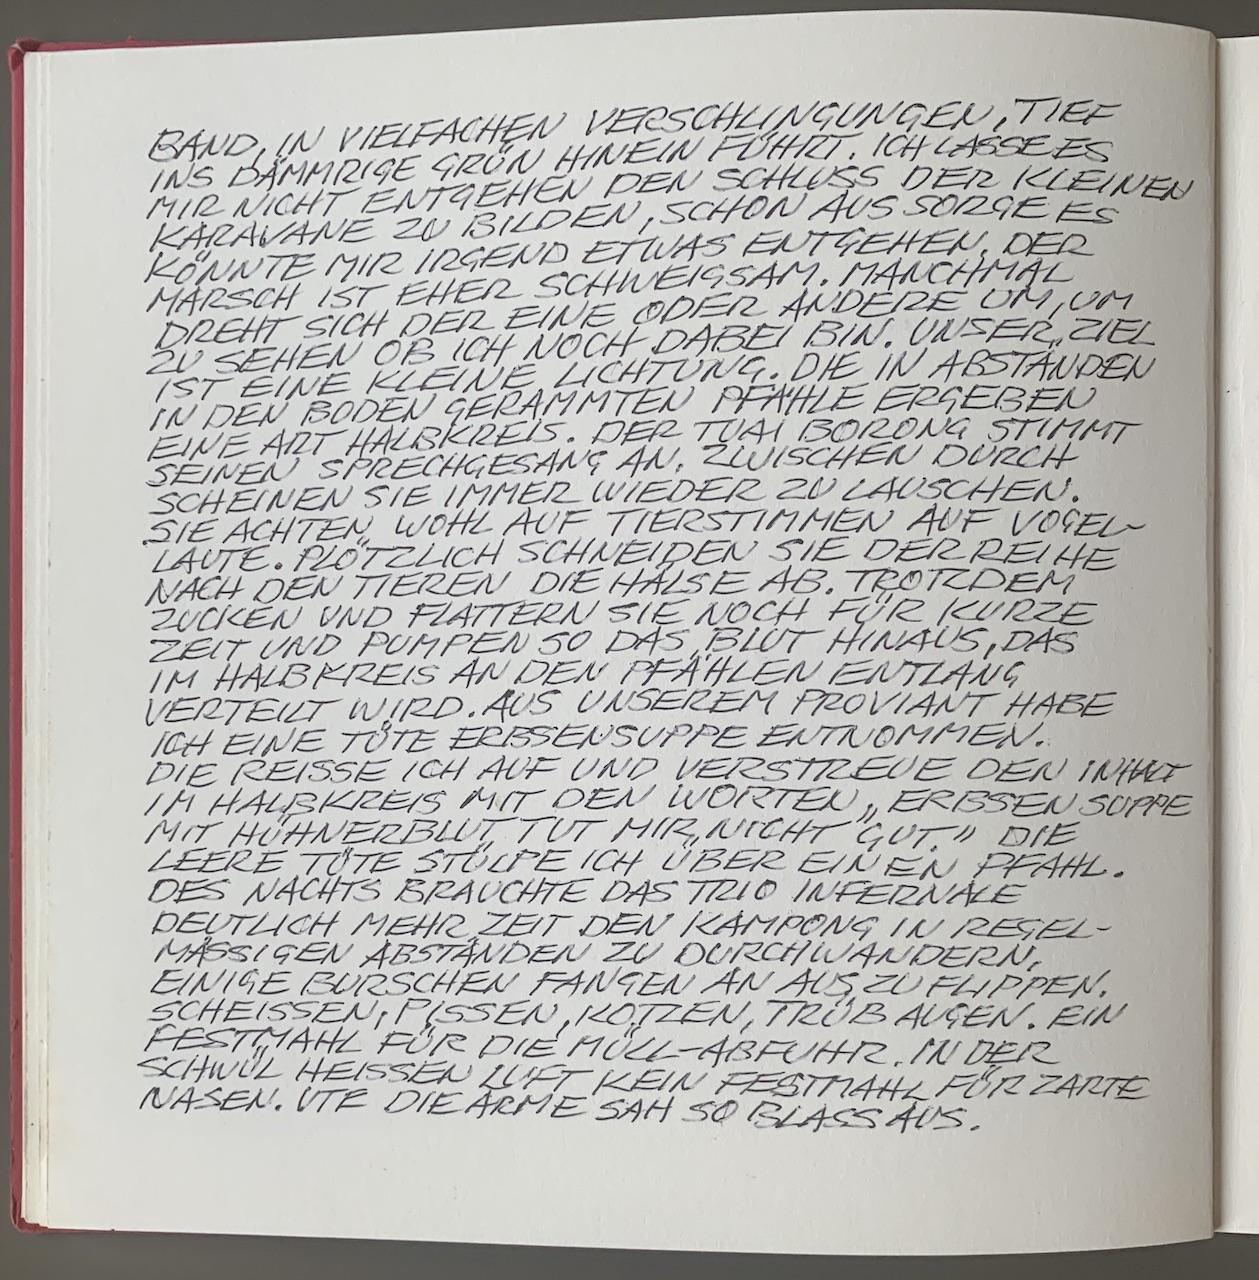 BAND, IN VIELFACHEN VERSCHLINGUNGEN, TIEF
INS DÄMMRIGE GRÜN HINEIN FÜHRT. ICH LASSE ES
MIR NICHT ENTGEHEN DEN SCHLUSS DER KLEINEN
KARAVANE ZU BILDEN, SCHON AUS SORGE ES
KÖNNTE MIR IRGEND ETWAS ENTGEHEN. DER
MARSCH IST EHER SCHWEIGSAM. MANCHMAL
DREHT SICH DER EINE ODER ANDERE UM, UM
ZU SEHEN OB ICH NOCH DABEI BIN. UNSER ZIEL
IST EINE KLEINE LICHTUNG. DIE IN ABSTÄNDEN
IN DEN BODEN GERAMMTEN PFÄHLE ERGEBEN
EINE ART HALBKREIS. DER TUAI BORONG STIMMT
SEINEN SPRECHGESANG AN. ZWISCHEN DURCH
SCHEINEN SIE IMMER WIEDER ZU LAUSCHEN.
SIE ACHTEN WOHL AUF TIERSTIMMEN AUF VOGEL-
LAUTE. PLÖTZLICH SCHNEIDEN SIE DER REIHE
NACH DEN TIEREN DIE HÄLSE AB. TROTZDEM
ZUCKEN UND FLATTERN SIE NOCH FÜR KURZE
ZEIT UND PUMPEN SO DAS BLUT HINAUS, DAS
IM HALBKREIS AN DEN PFÄHLEN ENTLANG
VERTEILT WIRD. AUS UNSEREM PROVIANT HABE
ICH EINE TÜTE ERBSENSUPPE ENTNOMMEN.
DIE REISSE ICH AUF UND VERSTREUE DEN INHALT
IM HALBKREIS MIT DEN WORTEN „ERBSEN SUPPE
MIT HÜHNERBLUT TUT MIR NICHT GUT." DIE
LEERE TÜTE STÜLPE ICH ÜBER EINEN PFAHL.
DES NACHTS BRAUCHTE DAS TRIO INFERNALE
DEUTLICH MEHR ZEIT DEN KAMPONG IN REGEL-
MÄSSIGEN ABSTÄNDEN ZU DURCHWANDERN.
EINIGE BURSCHEN FANGEN AN AUS ZU FLIPPEN.
SCHEISSEN, PISSEN, KOTZEN, TRÜB AUGEN. EIN
FESTMAHL FÜR DIE MÜLL-ABFUHR. IN DER
SCHWÜL HEISSEN LUFT KEIN FESTMAHL FÜR ZARTE
NASEN. UTE DIE ARME SAH SO BLASS AUS.